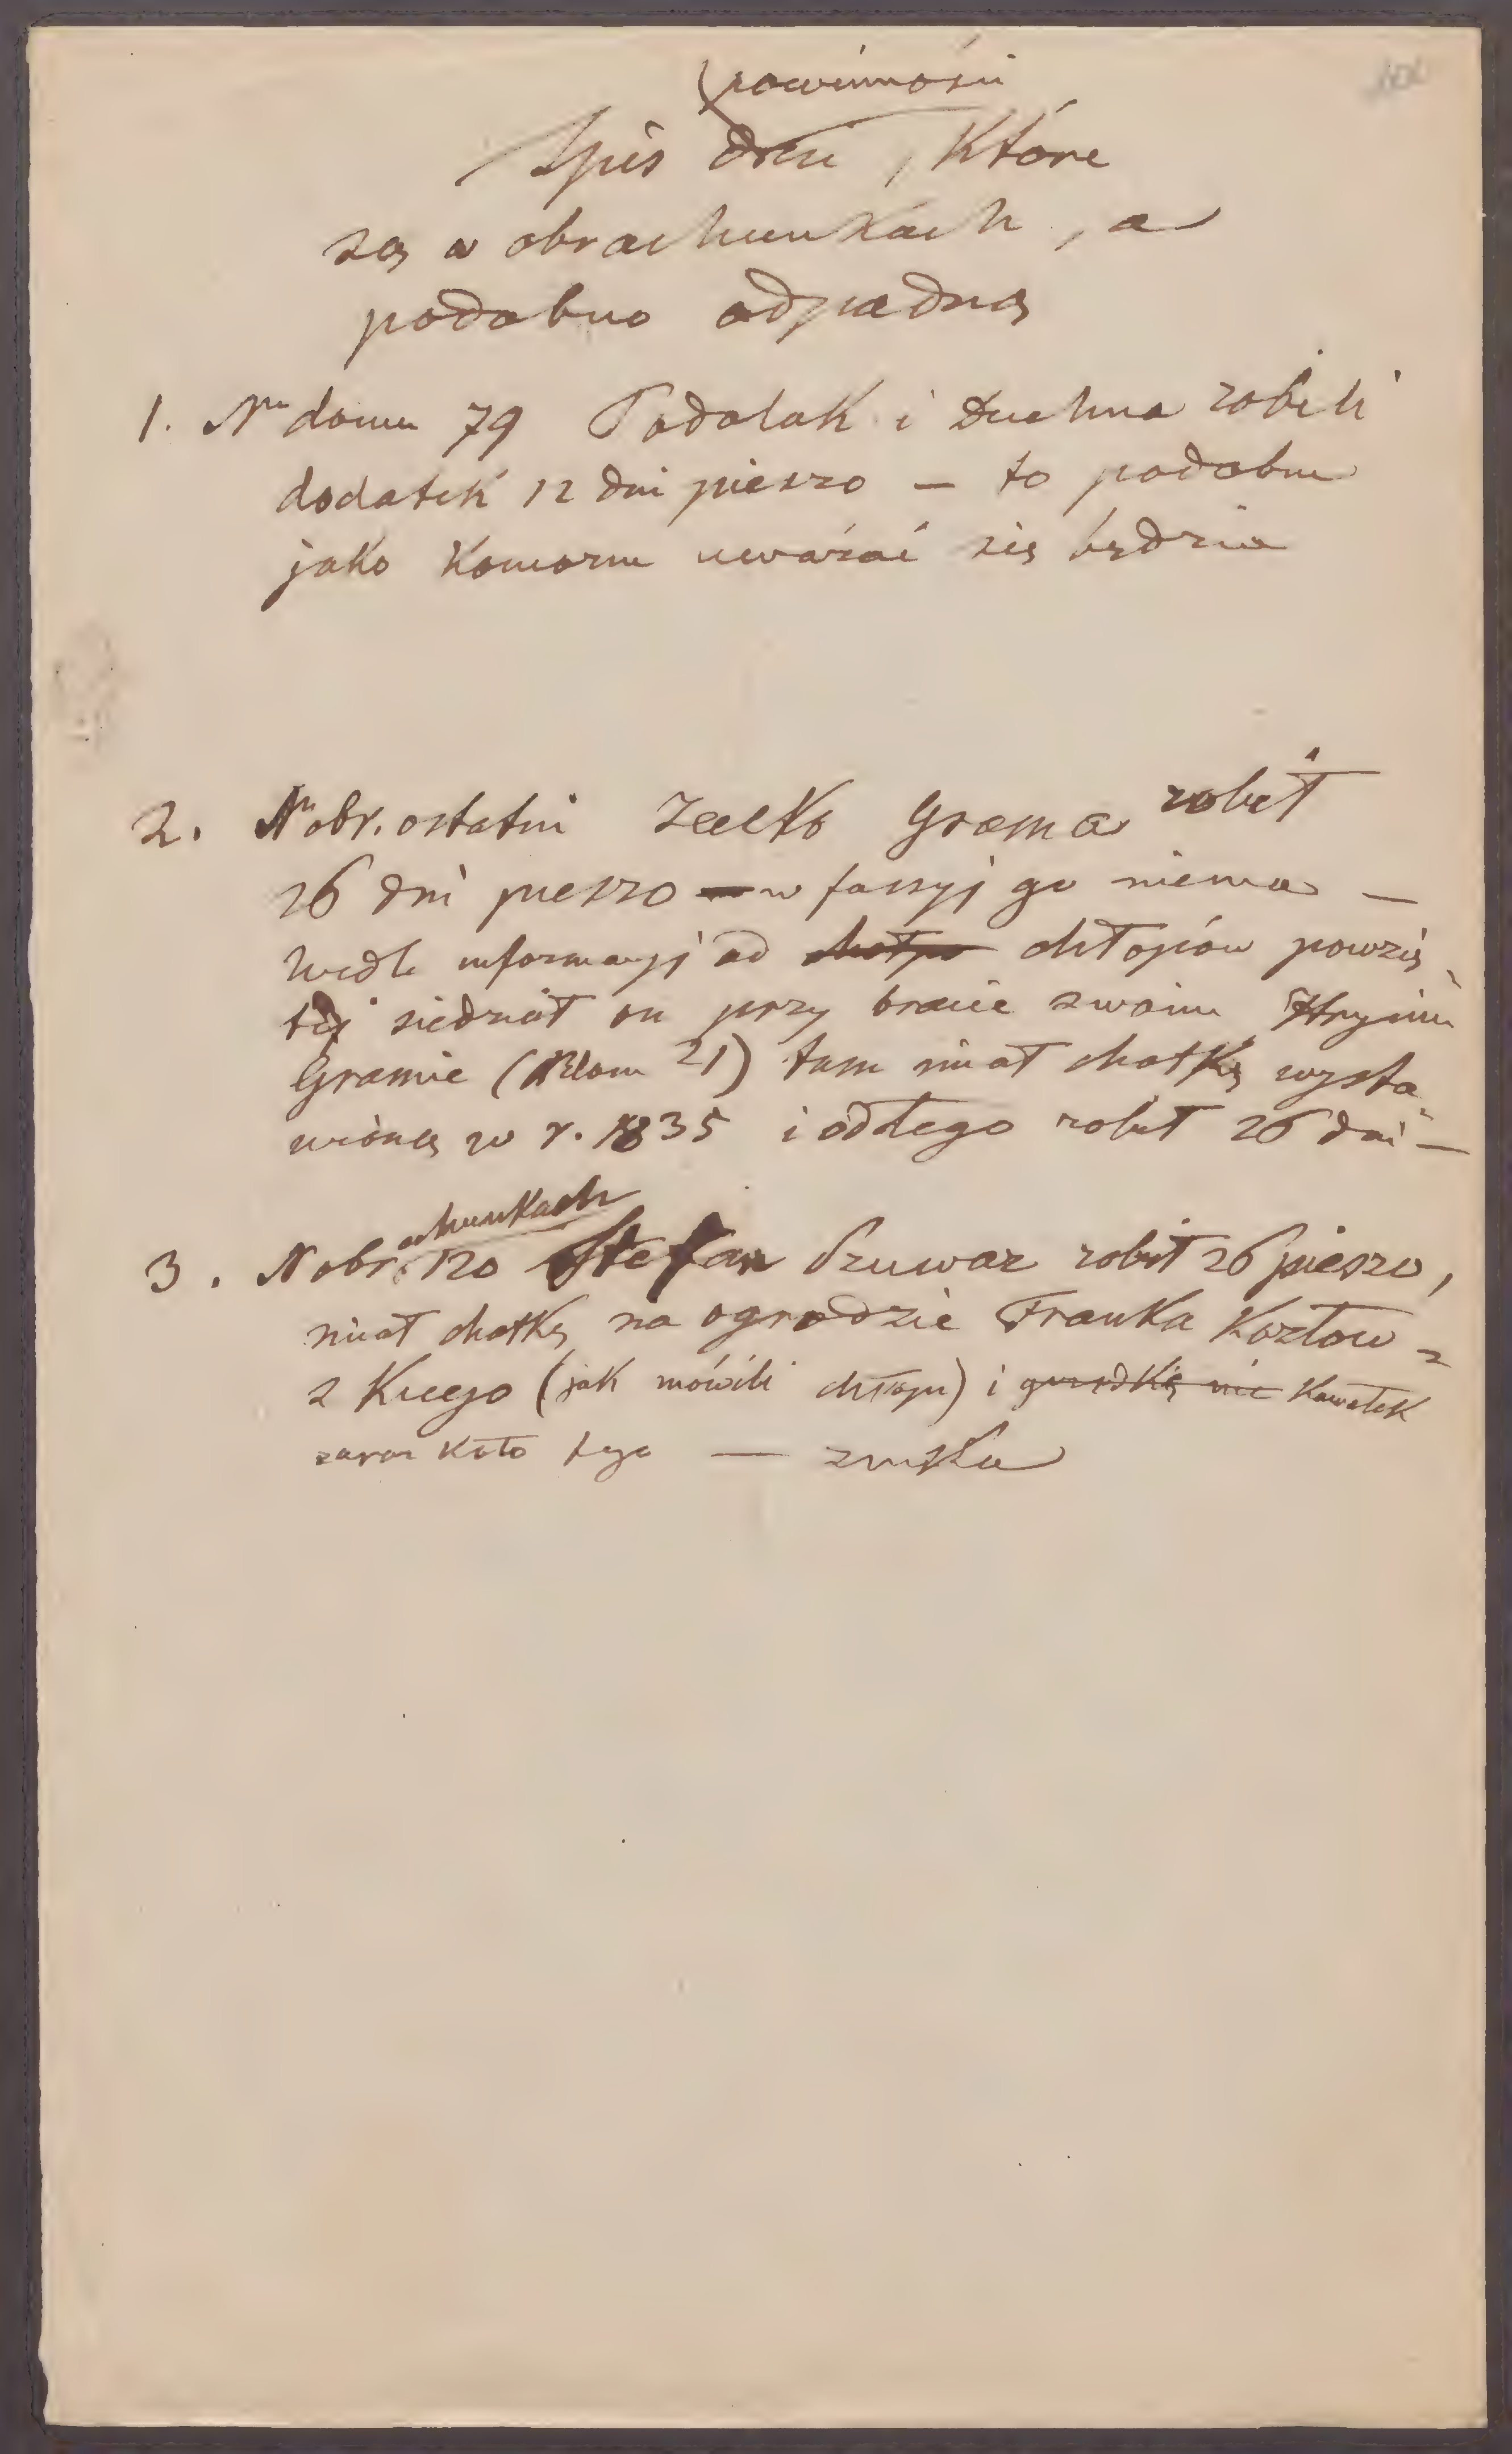 powinności
Spis dni, które
są w obrachunkach, a
podobno odpadną
1. Nr domu 79 Podolak i Duchna robili
dodatek 12 dni pieszo — to podobno
jako komorne uważać się będzie
2. Nr obr. ostatni Groma robił
26 dni pieszo — w fassyj go niema —
Wedle informacyj od chłopów powzię
tej siedział on przy bracie swoim Hryniu
Gromie (NDom 21) tam miał chatkę wysta
wioną w r. 1835 i odtego robił 26 dni —
achunkach
3. N obr. 120 Stefan Szuwar robił 26 pieszo,
miał chatkę na ogrodzie Franka Kozłow
skiego (jak mówili chłopi) i kawałek
zaraz koło tego —